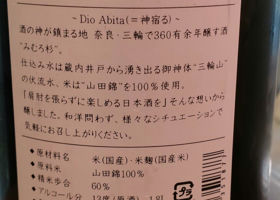 ~ Dio Abita(=神宿る) ~
酒の神が鎮まる地 奈良・三輪で360有余年醸す酒
"みむろ杉"。
仕込み水は蔵内井戸から湧き出る御神体"三輪山"
の伏流水、米は"山田錦"を100%使用。
「肩肘を張らずに楽しめる日本酒を」そんな想いから
醸しました。和洋問わず、様々なシチュエーションで
気軽にお召し上がりください。
◆原材料名 米(国産)・米麹(国産米)
◆原料米 山田錦100%
◆精米歩合 60%
◆アルコール分 13度(原酒) 1.8L